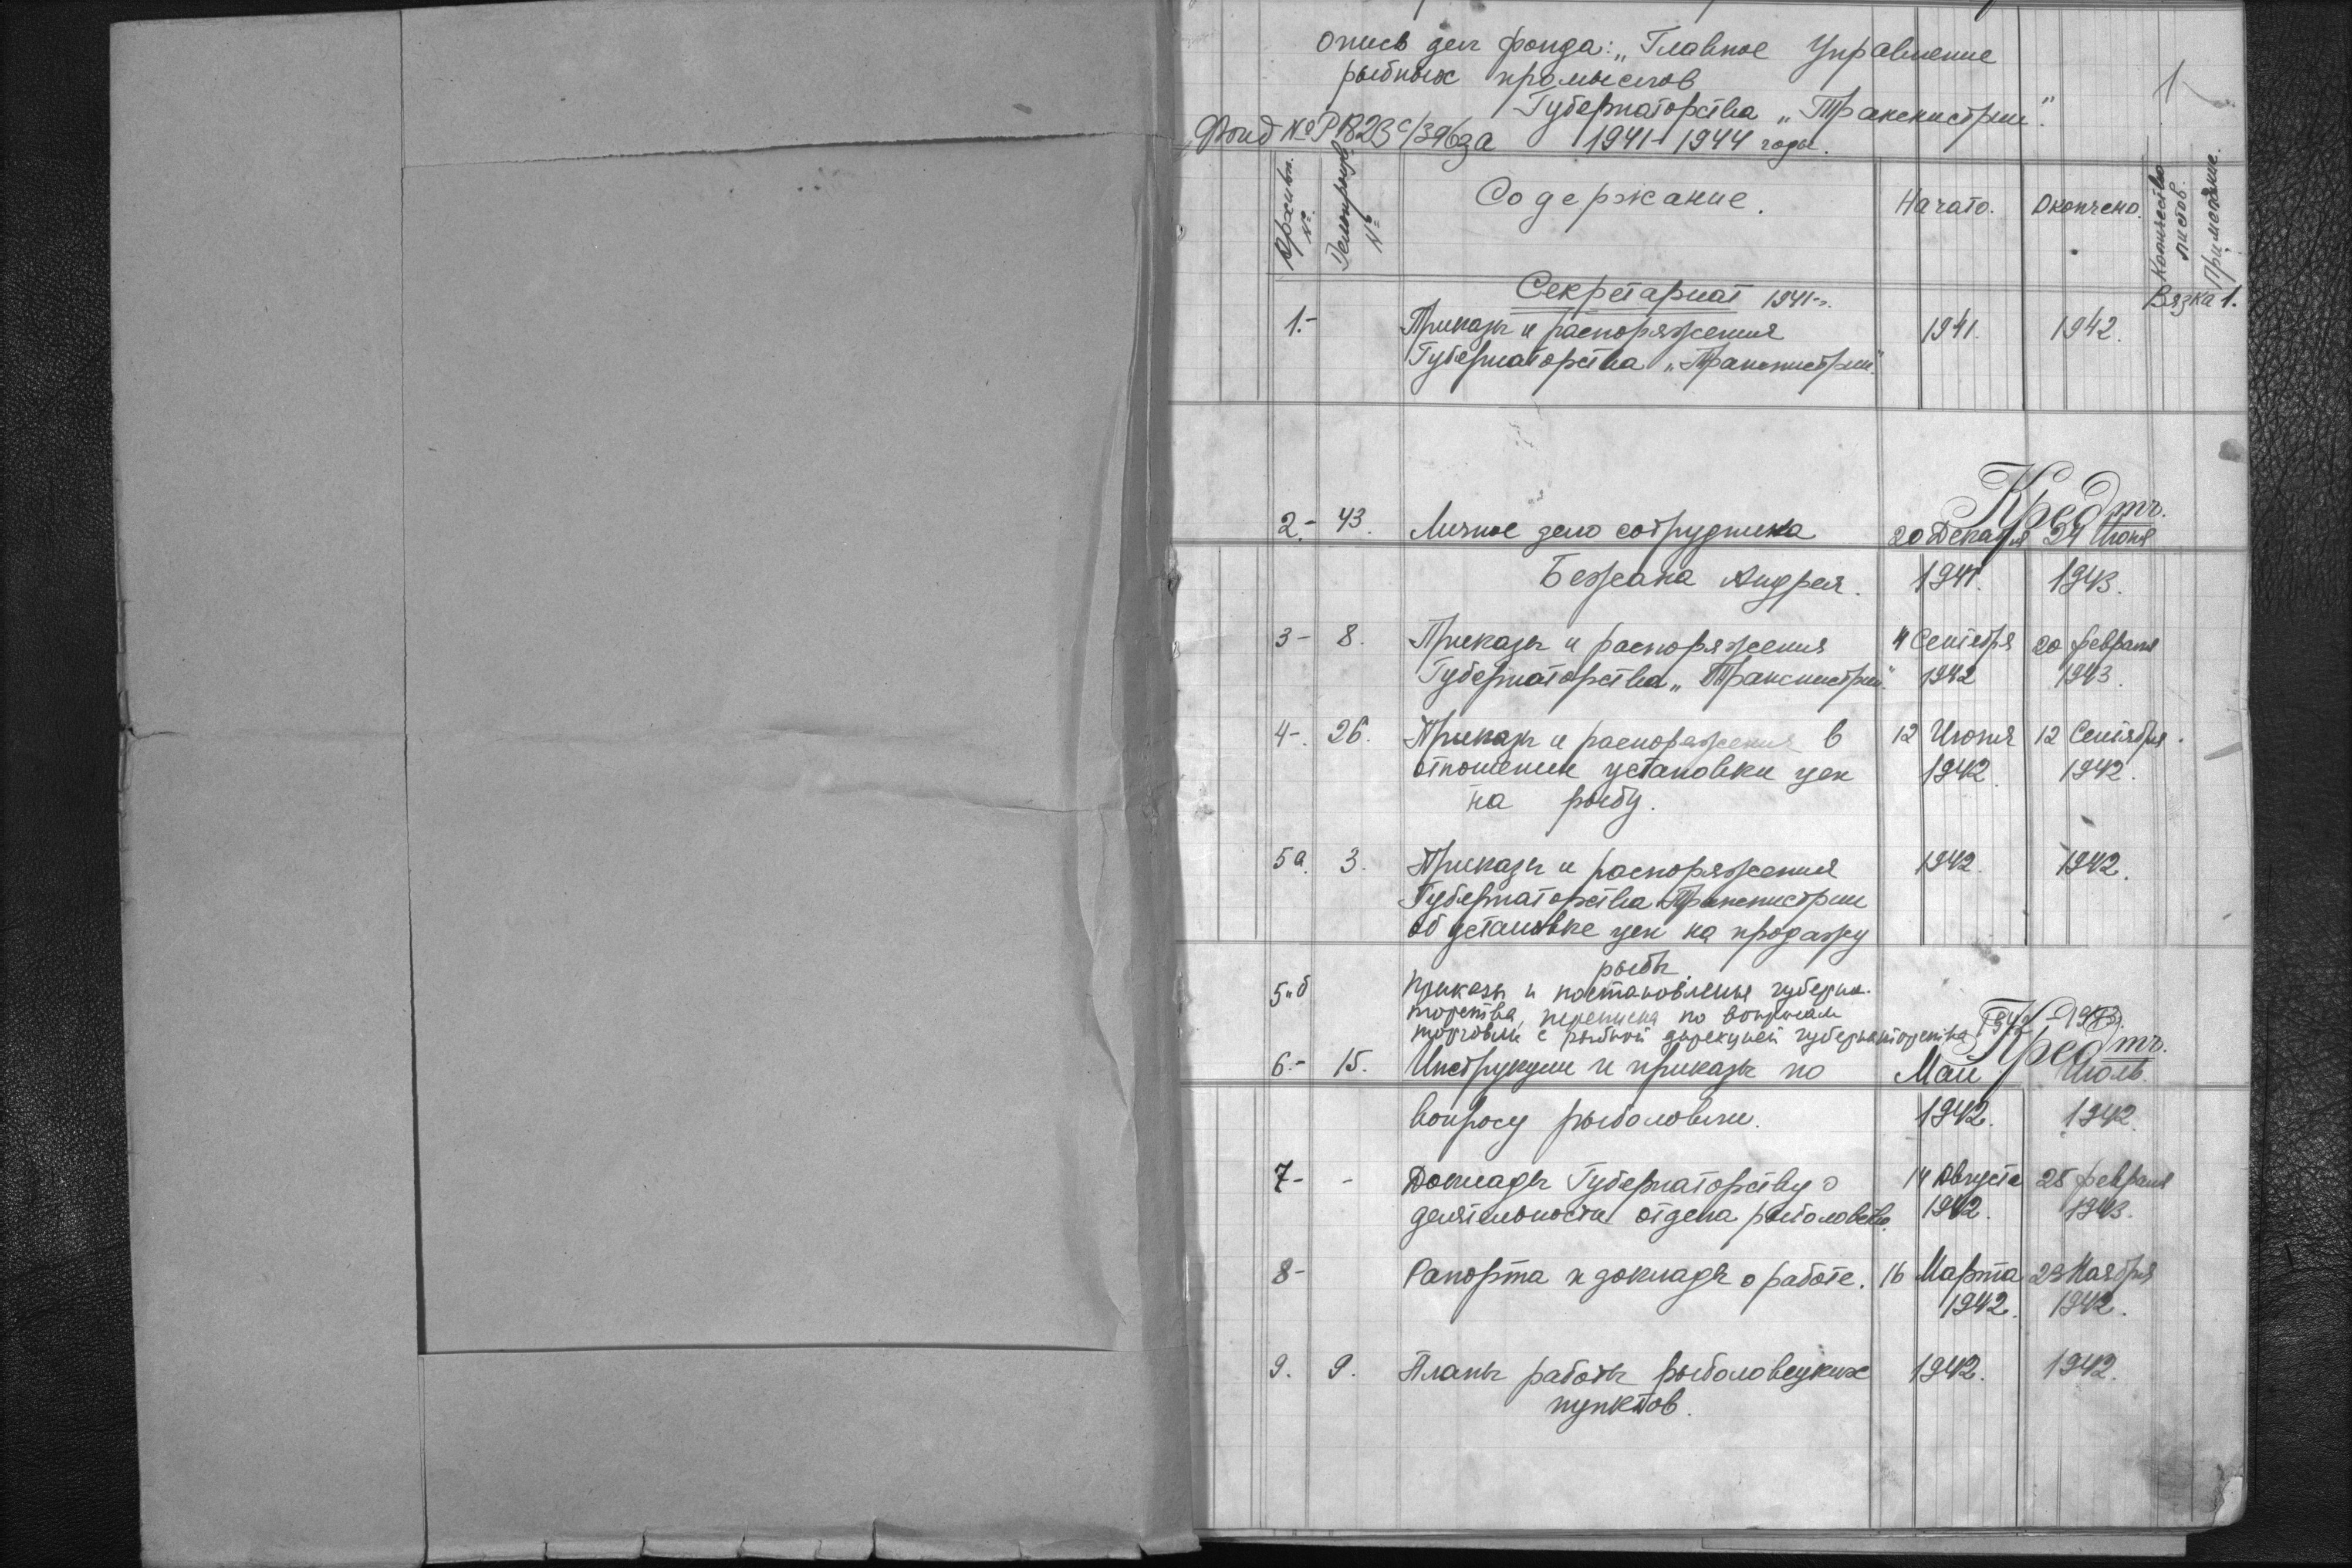 Опись дел фонда: „Главное Управление
рыбных промыслов
Губернаторства „Транснистрии".
1
Фонд № Р1823с/396 за 1941-1944 годы.
Архивн. №
Делопроизв. №
Содержание.
Начато.
Окончено.
Количество листов.
Примечание.
Секретариат 1941 г.
Вязка 1.
1.- Приказы и распоряжения 1941. 1942.
Губернаторства „Транснистрии".
Кредтъ.
2.- 43. Личное дело сотрудника 20 Декабря 24 Июня
Бежана Андрея. 1941. 1943.
3- 8. Приказы и распоряжения 4 Сентября 20 февраля
Губернаторства „Транснистрии". 1942 1943.
4-. 26. Приказы и распоряжения в 12 Июня 12 Сентября.
отношении установки цен 1942. 1942.
на рыбу.
5а. 3. Приказы и распоряжения 1942. 1942.
Губернаторства Транснистрии
об установке цен на продажу
рыбы.
5"б Приказы и постановления губерна-
торства, переписка по вопросам
торговли с рыбной дирекцией губернаторства 1942-1943.
Кредтъ.
6.- 15. Инструкции и приказы по Май Июль.
вопросу рыболовли. 1942. 1942.
7- - Доклады Губернаторству о 14 Августа 28 февраля
деятельности отдела рыболовства. 1942. 1943.
8- Рапорта и доклады о работе. 16 Марта 29 Ноября
1942. 1942.
9. 9. Планы работы рыболовецких 1942. 1942.
пунктов.